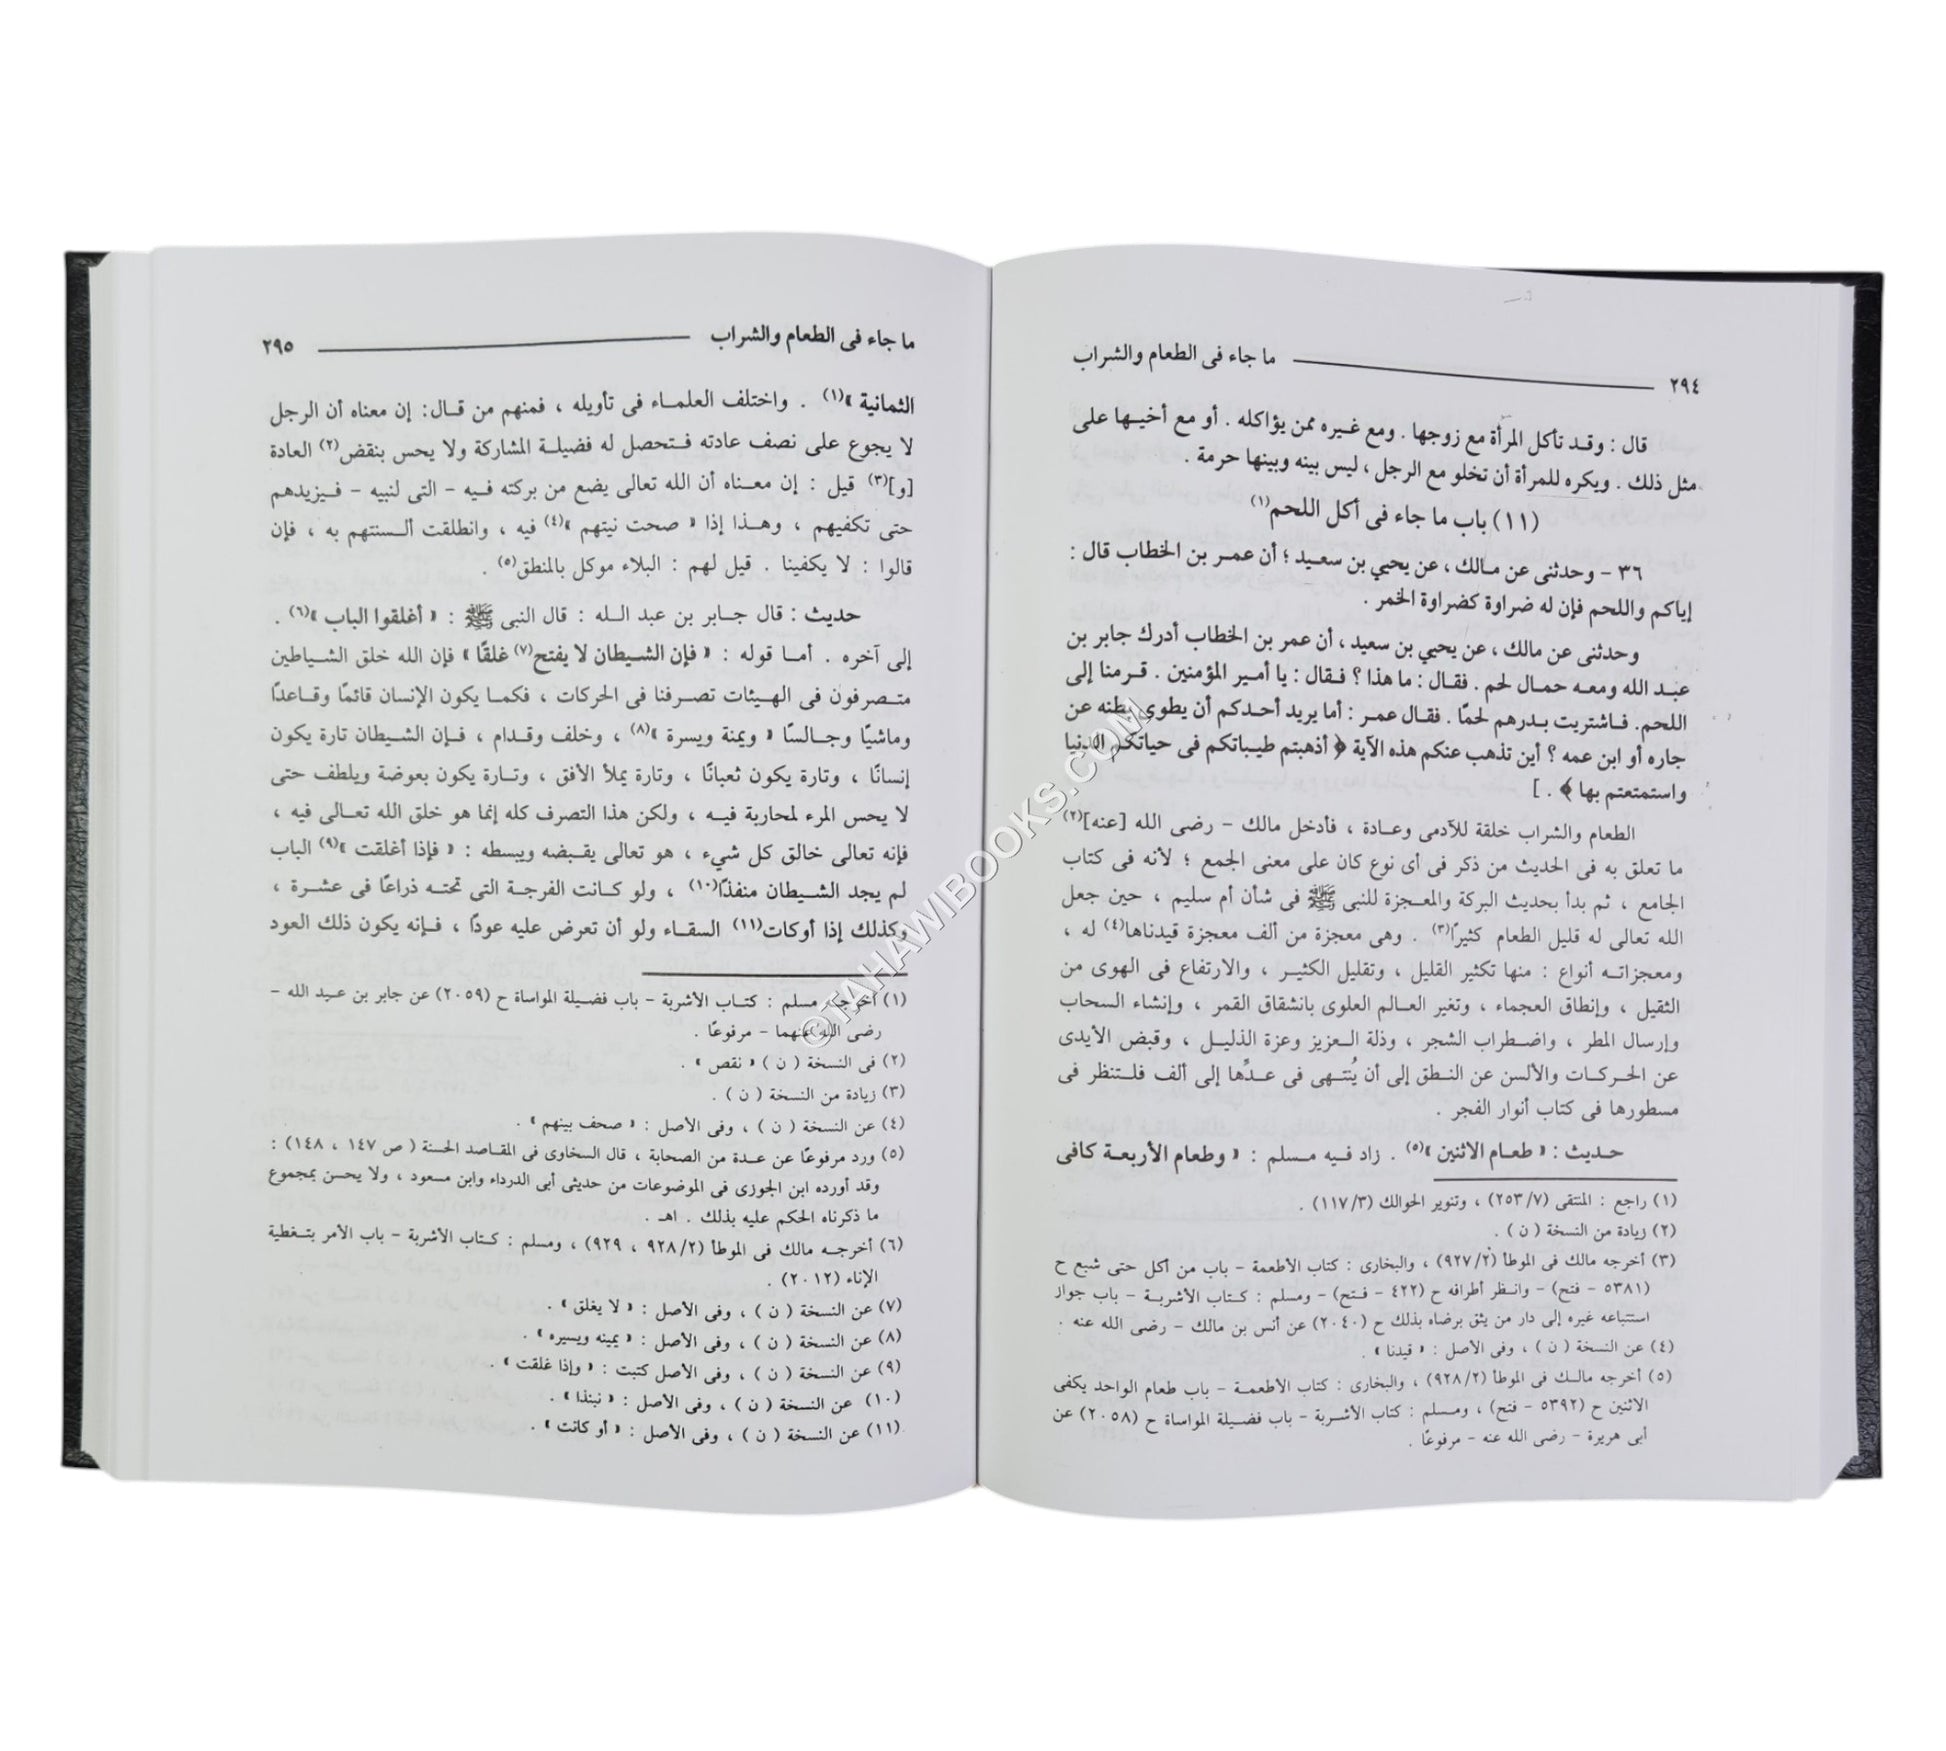 ٢٩٤ ما جاء فى الطعام والشراب
قال : وقد تأكل المرأة مع زوجها . ومع غيره ممن يؤاكله . أو مع أخيها على
مثل ذلك . ويكره للمرأة أن تخلو مع الرجل ، ليس بينه وبينها حرمة .
(١١) باب ما جاء فى أكل اللحم(١)
٣٦ - وحدثنى عن مالك ، عن يحيي بن سعيد ؛ أن عمر بن الخطاب قال :
إياكم واللحم فإن له ضراوة كضراوة الخمر .
وحدثنى عن مالك ، عن يحيي بن سعيد ، أن عمر بن الخطاب أدرك جابر بن
عبد الله ومعه حمال لحم . فقال : ما هذا ؟ فقال : يا أمير المؤمنين . قرمنا إلى
اللحم . فاشتريت بدرهم لحمًا . فقال عمر : أما يريد أحدكم أن يطوى بطنه عن
جاره أو ابن عمه ؟ أين تذهب عنكم هذه الآية ﴿ أذهبتم طيباتكم فى حياتكم الدنيا
واستمتعتم بها ﴾ . ]
الطعام والشراب خلقة للآدمى وعادة ، فأدخل مالك - رضى الله [عنه](٢)
ما تعلق به فى الحديث من ذكر فى أى نوع كان على معنى الجمع ؛ لأنه فى كتاب
الجامع ، ثم بدأ بحديث البركة والمعجزة للنبى ﷺ فى شأن أم سليم ، حين جعل
الله تعالى له قليل الطعام كثيرًا(٣) . وهى معجزة من ألف معجزة قيدناها(٤) له ،
ومعجزاته أنواع : منها تكثير القليل ، وتقليل الكثير ، والارتفاع فى الهوى من
الثقيل ، وإنطاق العجماء ، وتغير العالم العلوى بانشقاق القمر ، وإنشاء السحاب
وإرسال المطر ، واضطراب الشجر ، وذلة العزيز وعزة الذليل ، وقبض الأيدى
عن الحركات والألسن عن النطق إلى أن يُنتهى فى عدِّها إلى ألف فلتنظر فى
مسطورها فى كتاب أنوار الفجر .
حديث : « طعام الاثنين »(٥) . زاد فيه مسلم : « وطعام الأربعة كافى
(١) راجع : المنتقى (٢٥٣/٧) ، وتنوير الحوالك (١١٧/٣) .
(٢) زيادة من النسخة ( ن ) .
(٣) أخرجه مالك فى الموطأ (٩٢٧/٢) ، والبخارى : كتاب الأطعمة - باب من أكل حتى شبع ح
(٥٣٨١ - فتح) - وانظر أطرافه ح (٤٢٢ - فتح) - ومسلم : كتاب الأشربة - باب جواز
استتباعه غيره إلى دار من يثق برضاه بذلك ح (٢٠٤٠) عن أنس بن مالك - رضى الله عنه .
(٤) عن النسخة ( ن ) ، وفى الأصل : « قيدنا » .
(٥) أخرجه مالك فى الموطأ (٩٢٨/٢) ، والبخارى : كتاب الأطعمة - باب طعام الواحد يكفى
الاثنين ح (٥٣٩٢ - فتح) ، ومسلم : كتاب الأشربة - باب فضيلة المواساة ح (٢٠٥٨) عن
أبى هريرة - رضى الله عنه - مرفوعًا .
ما جاء فى الطعام والشراب ٢٩٥
الثمانية »(١) . واختلف العلماء فى تأويله ، فمنهم من قال: إن معناه أن الرجل
لا يجوع على نصف عادته فتحصل له فضيلة المشاركة ولا يحس بنقض(٢) العادة
[و](٣) قيل : إن معناه أن الله تعالى يضع من بركته فيه - التى لنبيه - فيزيدهم
حتى تكفيهم ، وهذا إذا « صحت نيتهم »(٤) فيه ، وانطلقت ألسنتهم به ، فإن
قالوا : لا يكفينا . قيل لهم : البلاء موكل بالمنطق(٥) .
حديث : قال جابر بن عبد الله : قال النبى ﷺ : « أغلقوا الباب »(٦) .
إلى آخره . أما قوله : « فإن الشيطان لا يفتح(٧) غلقًا » فإن الله خلق الشياطين
متصرفون فى الهيئات تصرفنا فى الحركات ، فكما يكون الإنسان قائمًا وقاعدًا
وماشيًا وجالسًا « ويمنة ويسرة »(٨) ، وخلف وقدام ، فإن الشيطان تارة يكون
إنسانًا ، وتارة يكون ثعبانًا ، وتارة يملأ الأفق ، وتارة يكون بعوضة ويلطف حتى
لا يحس المرء لمحاربة فيه ، ولكن هذا التصرف كله إنما هو خلق الله تعالى فيه ،
فإنه تعالى خالق كل شيء ، هو تعالى يقبضه ويبسطه : « فإذا أغلقت »(٩) الباب
لم يجد الشيطان منفذًا(١٠) ، ولو كانت الفرجة التي تحته ذراعًا فى عشرة ،
وكذلك إذا أوكات(١١) السقاء ولو أن تعرض عليه عودًا ، فإنه يكون ذلك العود
(١) أخرجه مسلم : كتاب الأشربة - باب فضيلة المواساة ح (٢٠٥٩) عن جابر بن عبد الله -
رضى الله عنهما - مرفوعًا .
(٢) فى النسخة ( ن ) « نقص » .
(٣) زيادة من النسخة ( ن ) .
(٤) عن النسخة ( ن ) ، وفى الأصل : « صحف بينهم » .
(٥) ورد مرفوعًا عن عدة من الصحابة ، قال السخاوى فى المقاصد الحسنة ( ص ١٤٧ ، ١٤٨) :
وقد أورده ابن الجوزى فى الموضوعات من حديثى أبى الدرداء وابن مسعود ، ولا يحسن بمجموع
ما ذكرناه الحكم عليه بذلك . اهـ .
(٦) أخرجه مالك فى الموطأ (٩٢٨/٢ ، ٩٢٩) ، ومسلم : كتاب الأشربة - باب الأمر بتغطية
الإناء (٢٠١٢) .
(٧) عن النسخة ( ن ) ، وفى الأصل : « لا يغلق » .
(٨) عن النسخة ( ن ) ، وفى الأصل : « يمينه ويسيره » .
(٩) عن النسخة ( ن ) ، وفى الأصل كتبت : « وإذا غلقت » .
(١٠) عن النسخة ( ن ) ، وفى الأصل : « نبنذا » .
(١١) عن النسخة ( ن ) ، وفى الأصل : « أو كانت » .
©TAHAWIBOOKS.COM